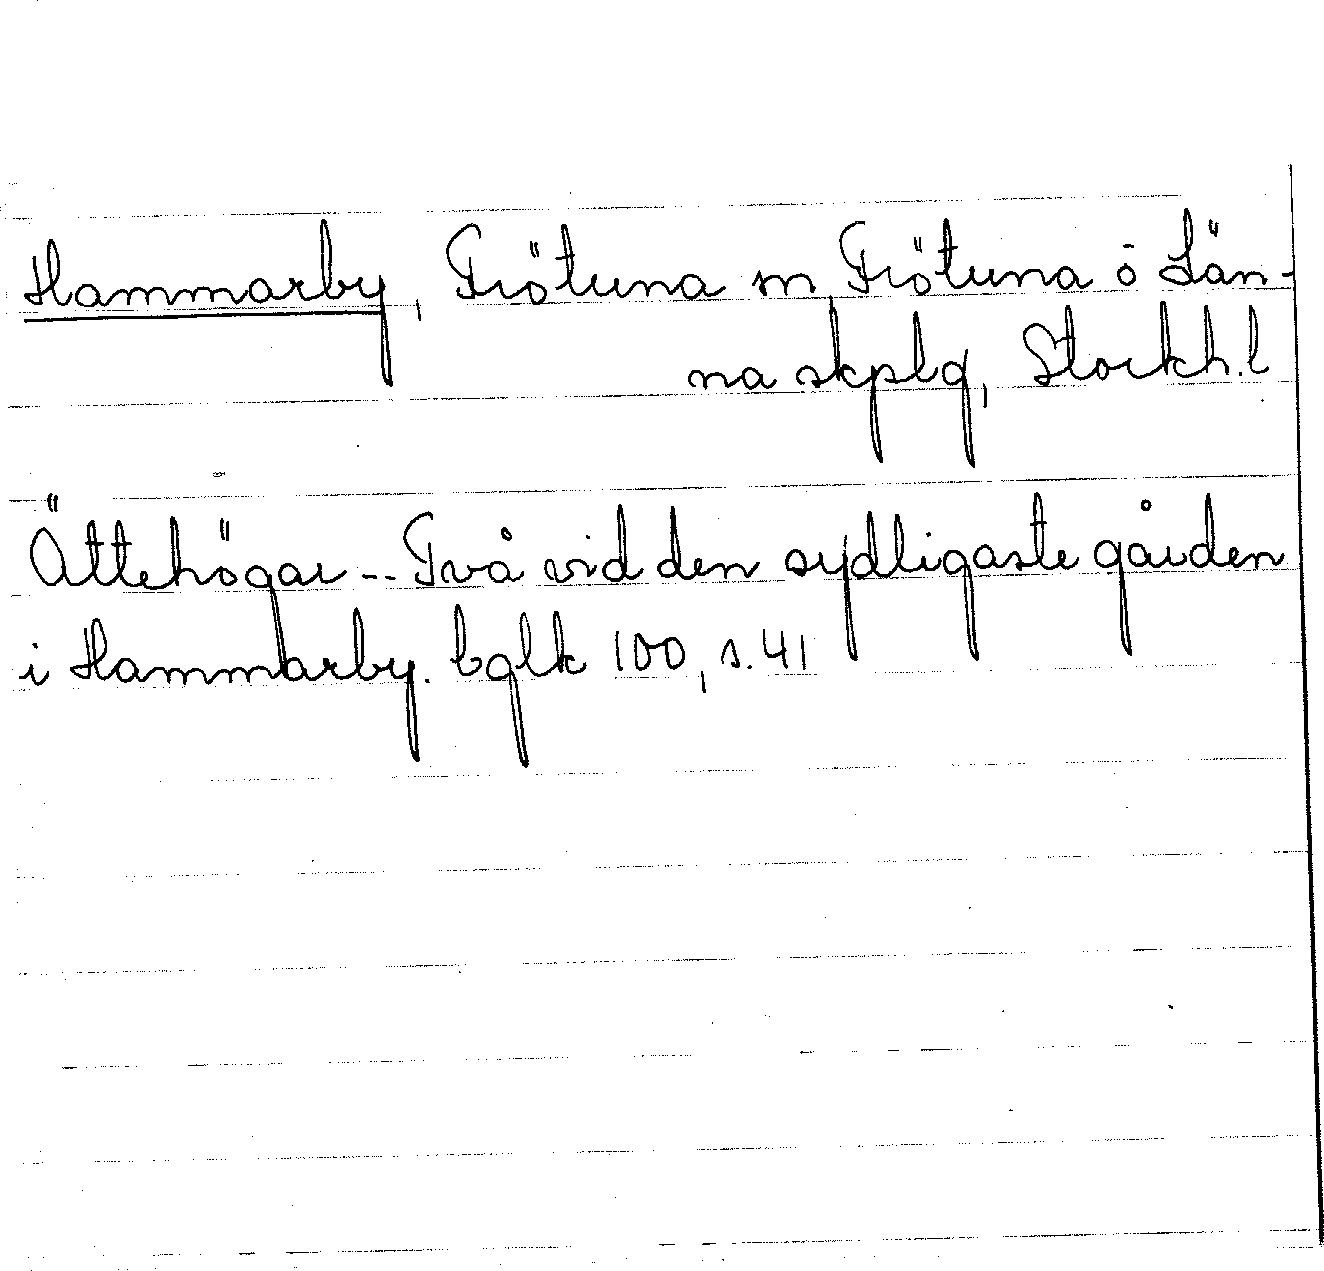 Hammarby, Frötuna sn Frötuna o Län-
na skplg, Stockh. l
Ättehögar -- Två vid den sydligaste gården
i Hammarby. bglk 100, s. 41